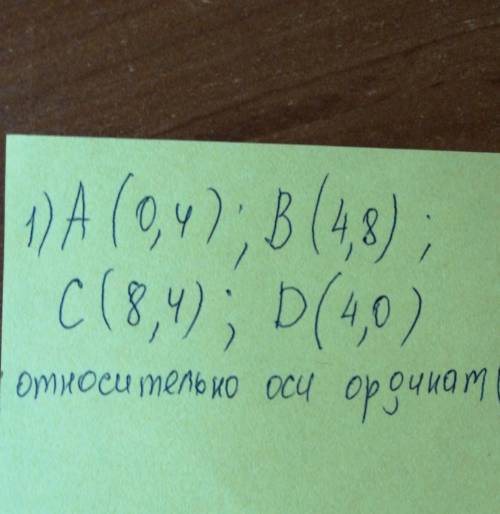 1) A (0,4); B (4,8);
C (8,4); D (4,0)
относительно оси ординат